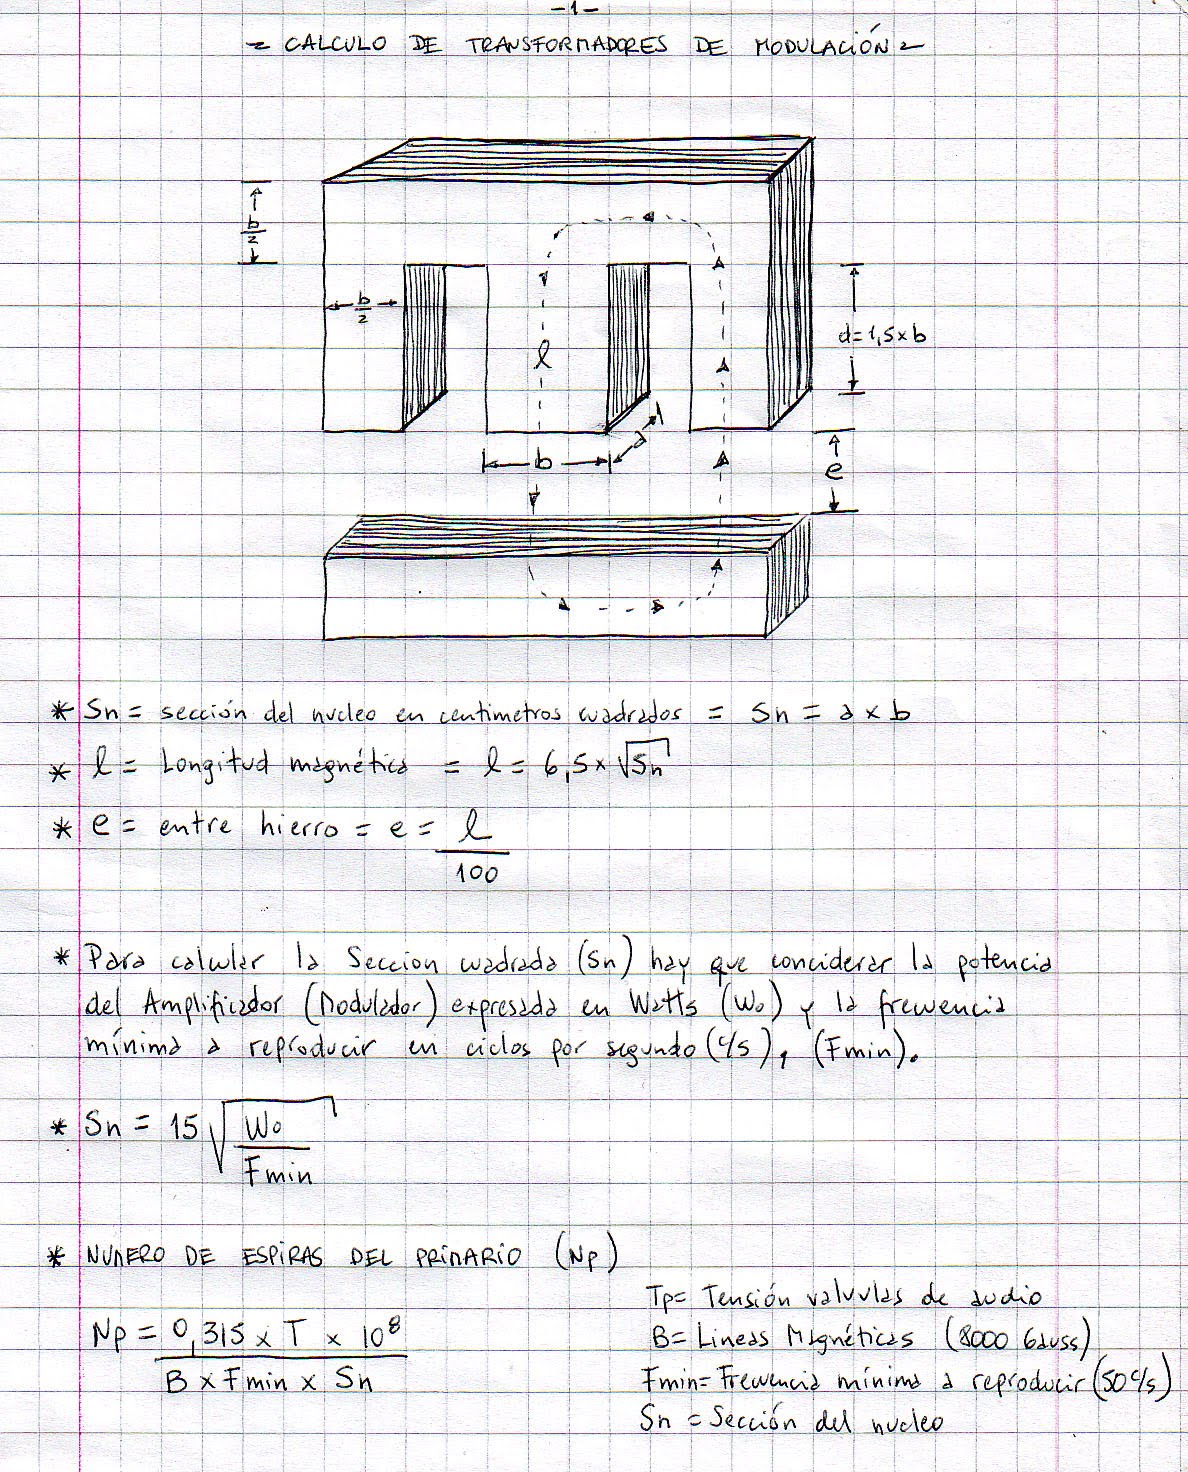 -1-
- CALCULO DE TRANSFORMADORES DE MODULACIÓN -
b/2
b/2
l
d=1,5xb
b
a
e
* Sn = sección del nucleo en centimetros cuadrados = Sn = a x b
* l = Longitud magnética = l = 6,5 x √Sn
* e = entre hierro = e = l
100
* Para calcular la Seccion cuadrada (Sn) hay que conciderar la potencia
del Amplificador (Modulador) expresada en Watts (Wo) y la frecuencia
mínima a reproducir en ciclos por segundo (c/s), (Fmin).
* Sn = 15 √ Wo
Fmin
* NUMERO DE ESPIRAS DEL PRIMARIO (Np)
Np = 0,315 x T x 10⁸
B x Fmin x Sn
Tp= Tensión valvulas de audio
B= Lineas Magnéticas (8000 Gauss)
Fmin= Frecuencia mínima a reproducir (50 c/s)
Sn = Sección del nucleo